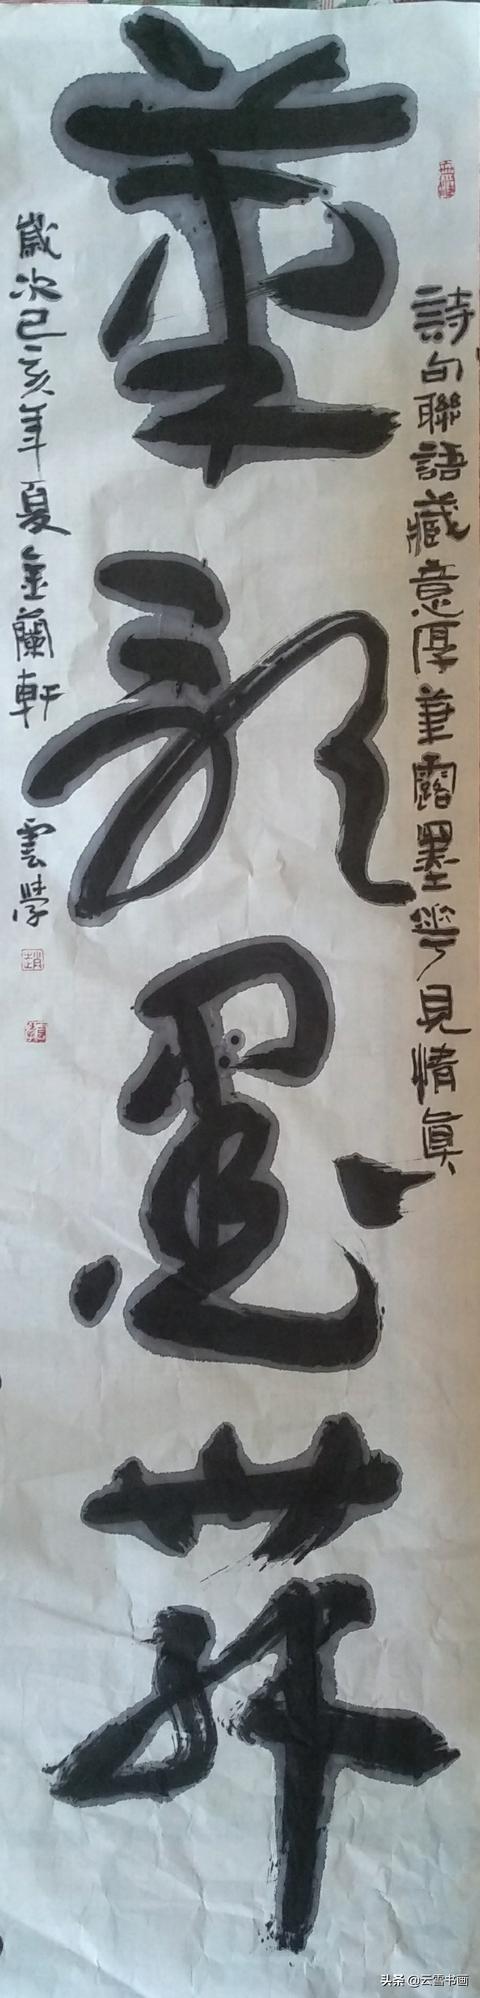 詩句聯語藏意厚筆露墨華見情眞
筆歌墨舞
歲次己亥年夏金蘭軒 雲
趙
头条 @云雪书画